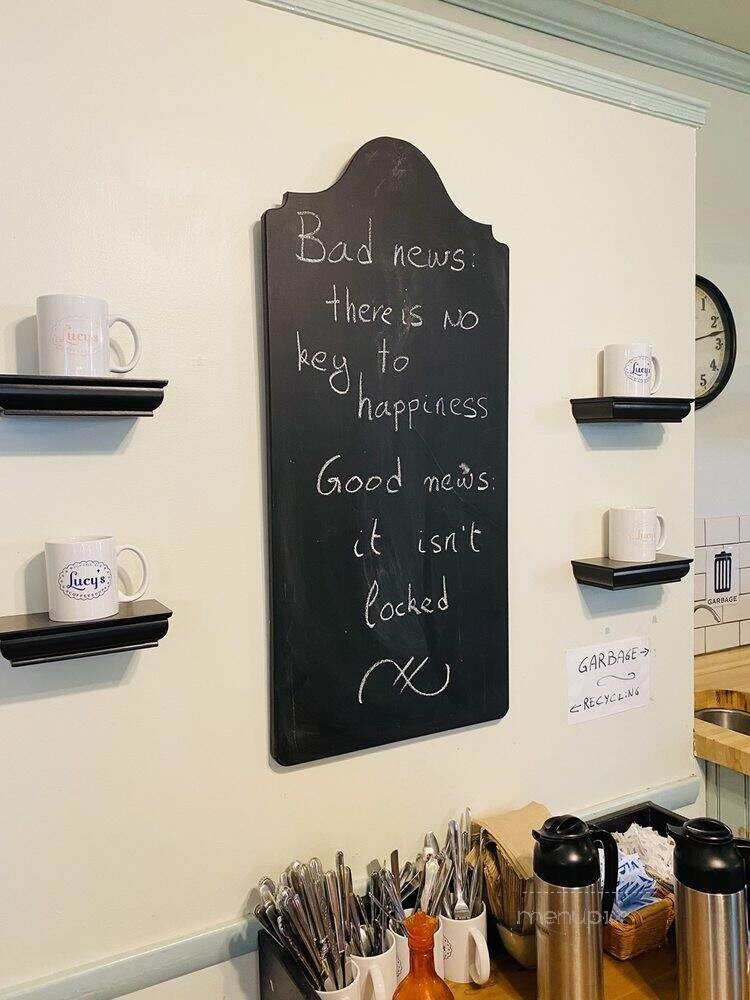 Bad news:
there is NO
key to
happiness
Good news:
it isn't
locked
Lucy's
Lucy's
COFFEE
Lucy's
Lucy's
1
2
3
4
5
GARBAGE
GARBAGE →
← RECYCLING
menupix